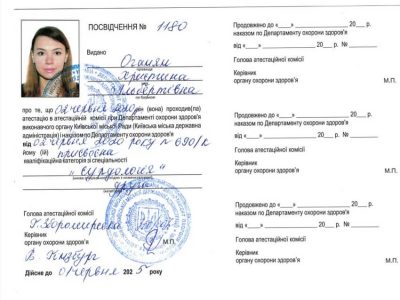 ПОСВІДЧЕННЯ № 1180
Видано Оганян
Христина
Альбертівна
про те, що 02 червня 2020 він (вона) проходив(ла)
атестацію в атестаційній комісії при Департаменті охорони здоров'я
виконавчого органу Київської міської Ради (Київська міська державна
адміністрація) і наказом Департаменту охорони здоров'я
від 02 червня 2020 року № 690/к
йому (їй) присвоєна
кваліфікаційна категорія зі спеціальності
"сурдологія"
друга
Голова атестаційної комісії
Керівник
органу охорони здоров'я М.П.
Дійсне до 01 червня 2025 року
Продовжено до «____» ________ 20___ р.
наказом по Департаменту охорони здоров'я
від «____» ________ 20___ р. №
Голова атестаційної комісії
Керівник
органу охорони здоров'я
М.П.
Продовжено до «____» ________ 20___ р.
наказом по Департаменту охорони здоров'я
від «____» ________ 20___ р. №
Голова атестаційної комісії
Керівник
органу охорони здоров'я
М.П.
Продовжено до «____» ________ 20___ р.
наказом по Департаменту охорони здоров'я
від «____» ________ 20___ р. №
Голова атестаційної комісії
Керівник
органу охорони здоров'я
М.П.